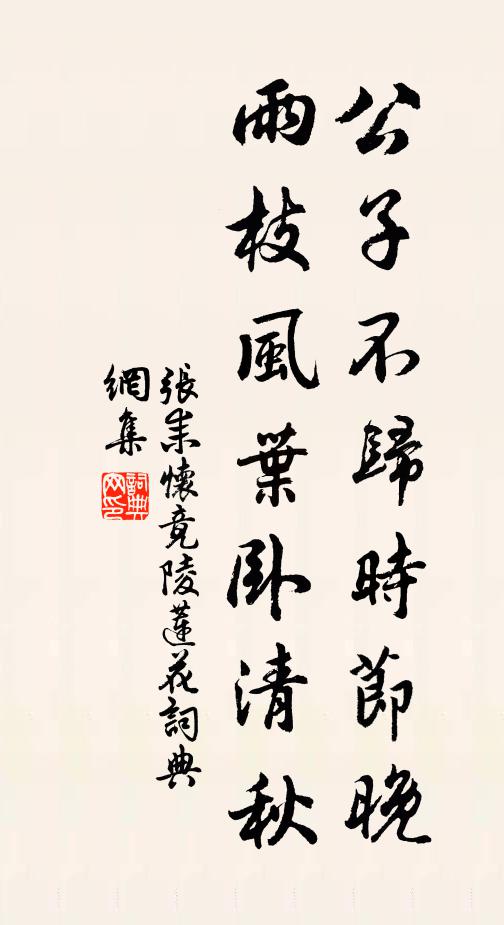 公子不歸時節晚
雨枝風葉臥清秋
張耒懷竟陵蓮花詞典
網集
詞典
网印